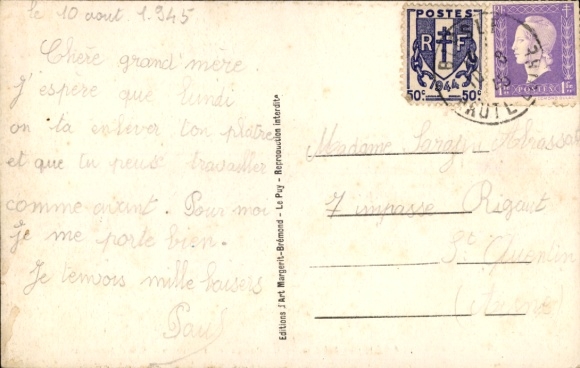 le 10 août 1.945
Chère grand'mère.
J'espère que lundi
on ta enlever ton plâtre
et que tu peux travailler
comme avant. Pour moi
je me porte bien.
Je t'envois mille baisers
Paul
Editions d'Art Margerit-Brémond - Le Puy - Reproduction interdite
POSTES
RF
1944
50c 50c
POSTES
HAUTE LOIRE
Madame
7 impasse Rigaut
St Quentin
(Aisne)